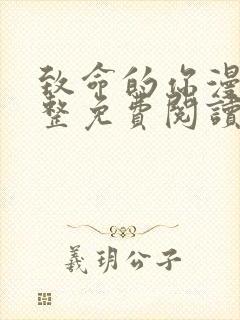 致命的你漫
整免費閱讀
義玥公子